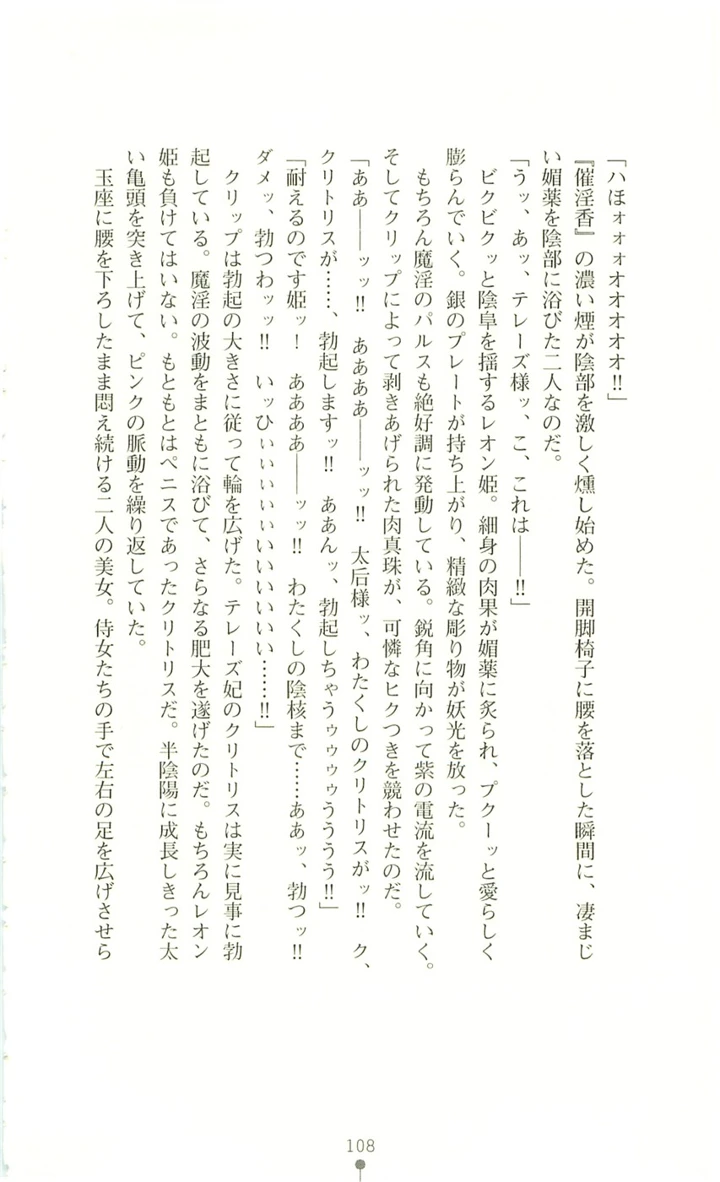 「ハほォォォオオオオオ‼」
『催淫香』の濃い煙が陰部を激しく燻し始めた。開脚椅子に腰を落とした瞬間に、凄まじ
い媚薬を陰部に浴びた二人なのだ。
「うッ、あッ、テレーズ様ッ、こ、これは――‼」
ビクビクッと陰阜を揺するレオン姫。細身の肉果が媚薬に炙られ、プクーッと愛らしく
膨らんでいく。銀のプレートが持ち上がり、精緻な彫り物が妖光を放った。
もちろん魔淫のパルスも絶好調に発動している。鋭角に向かって紫の電流を流していく。
そしてクリップによって剥きあげられた肉真珠が、可憐なヒクつきを競わせたのだ。
「ああ――ッッ‼　ああああ――ッッ‼　太后様ッ、わたくしのクリトリスがッ‼　ク、
クリトリスが……、勃起しますッ‼　ああんッ、勃起しちゃうゥゥゥゥうううう‼」
「耐えるのです姫ッ！　ああああ――ッッ‼　わたくしの陰核まで……ああッ、勃つッ‼
ダメッ、勃つわッッ‼　いッひぃぃぃぃぃいいいいいいい……‼」
クリップは勃起の大きさに従って輪を広げた。テレーズ妃のクリトリスは実に見事に勃
起している。魔淫の波動をまともに浴びて、さらなる肥大を遂げたのだ。もちろんレオン
姫も負けてはいない。もともとはペニスであったクリトリスだ。半陰陽に成長しきった太
い亀頭を突き上げて、ピンクの脈動を繰り返していた。
玉座に腰を下ろしたまま悶え続ける二人の美女。侍女たちの手で左右の足を広げさせら
108